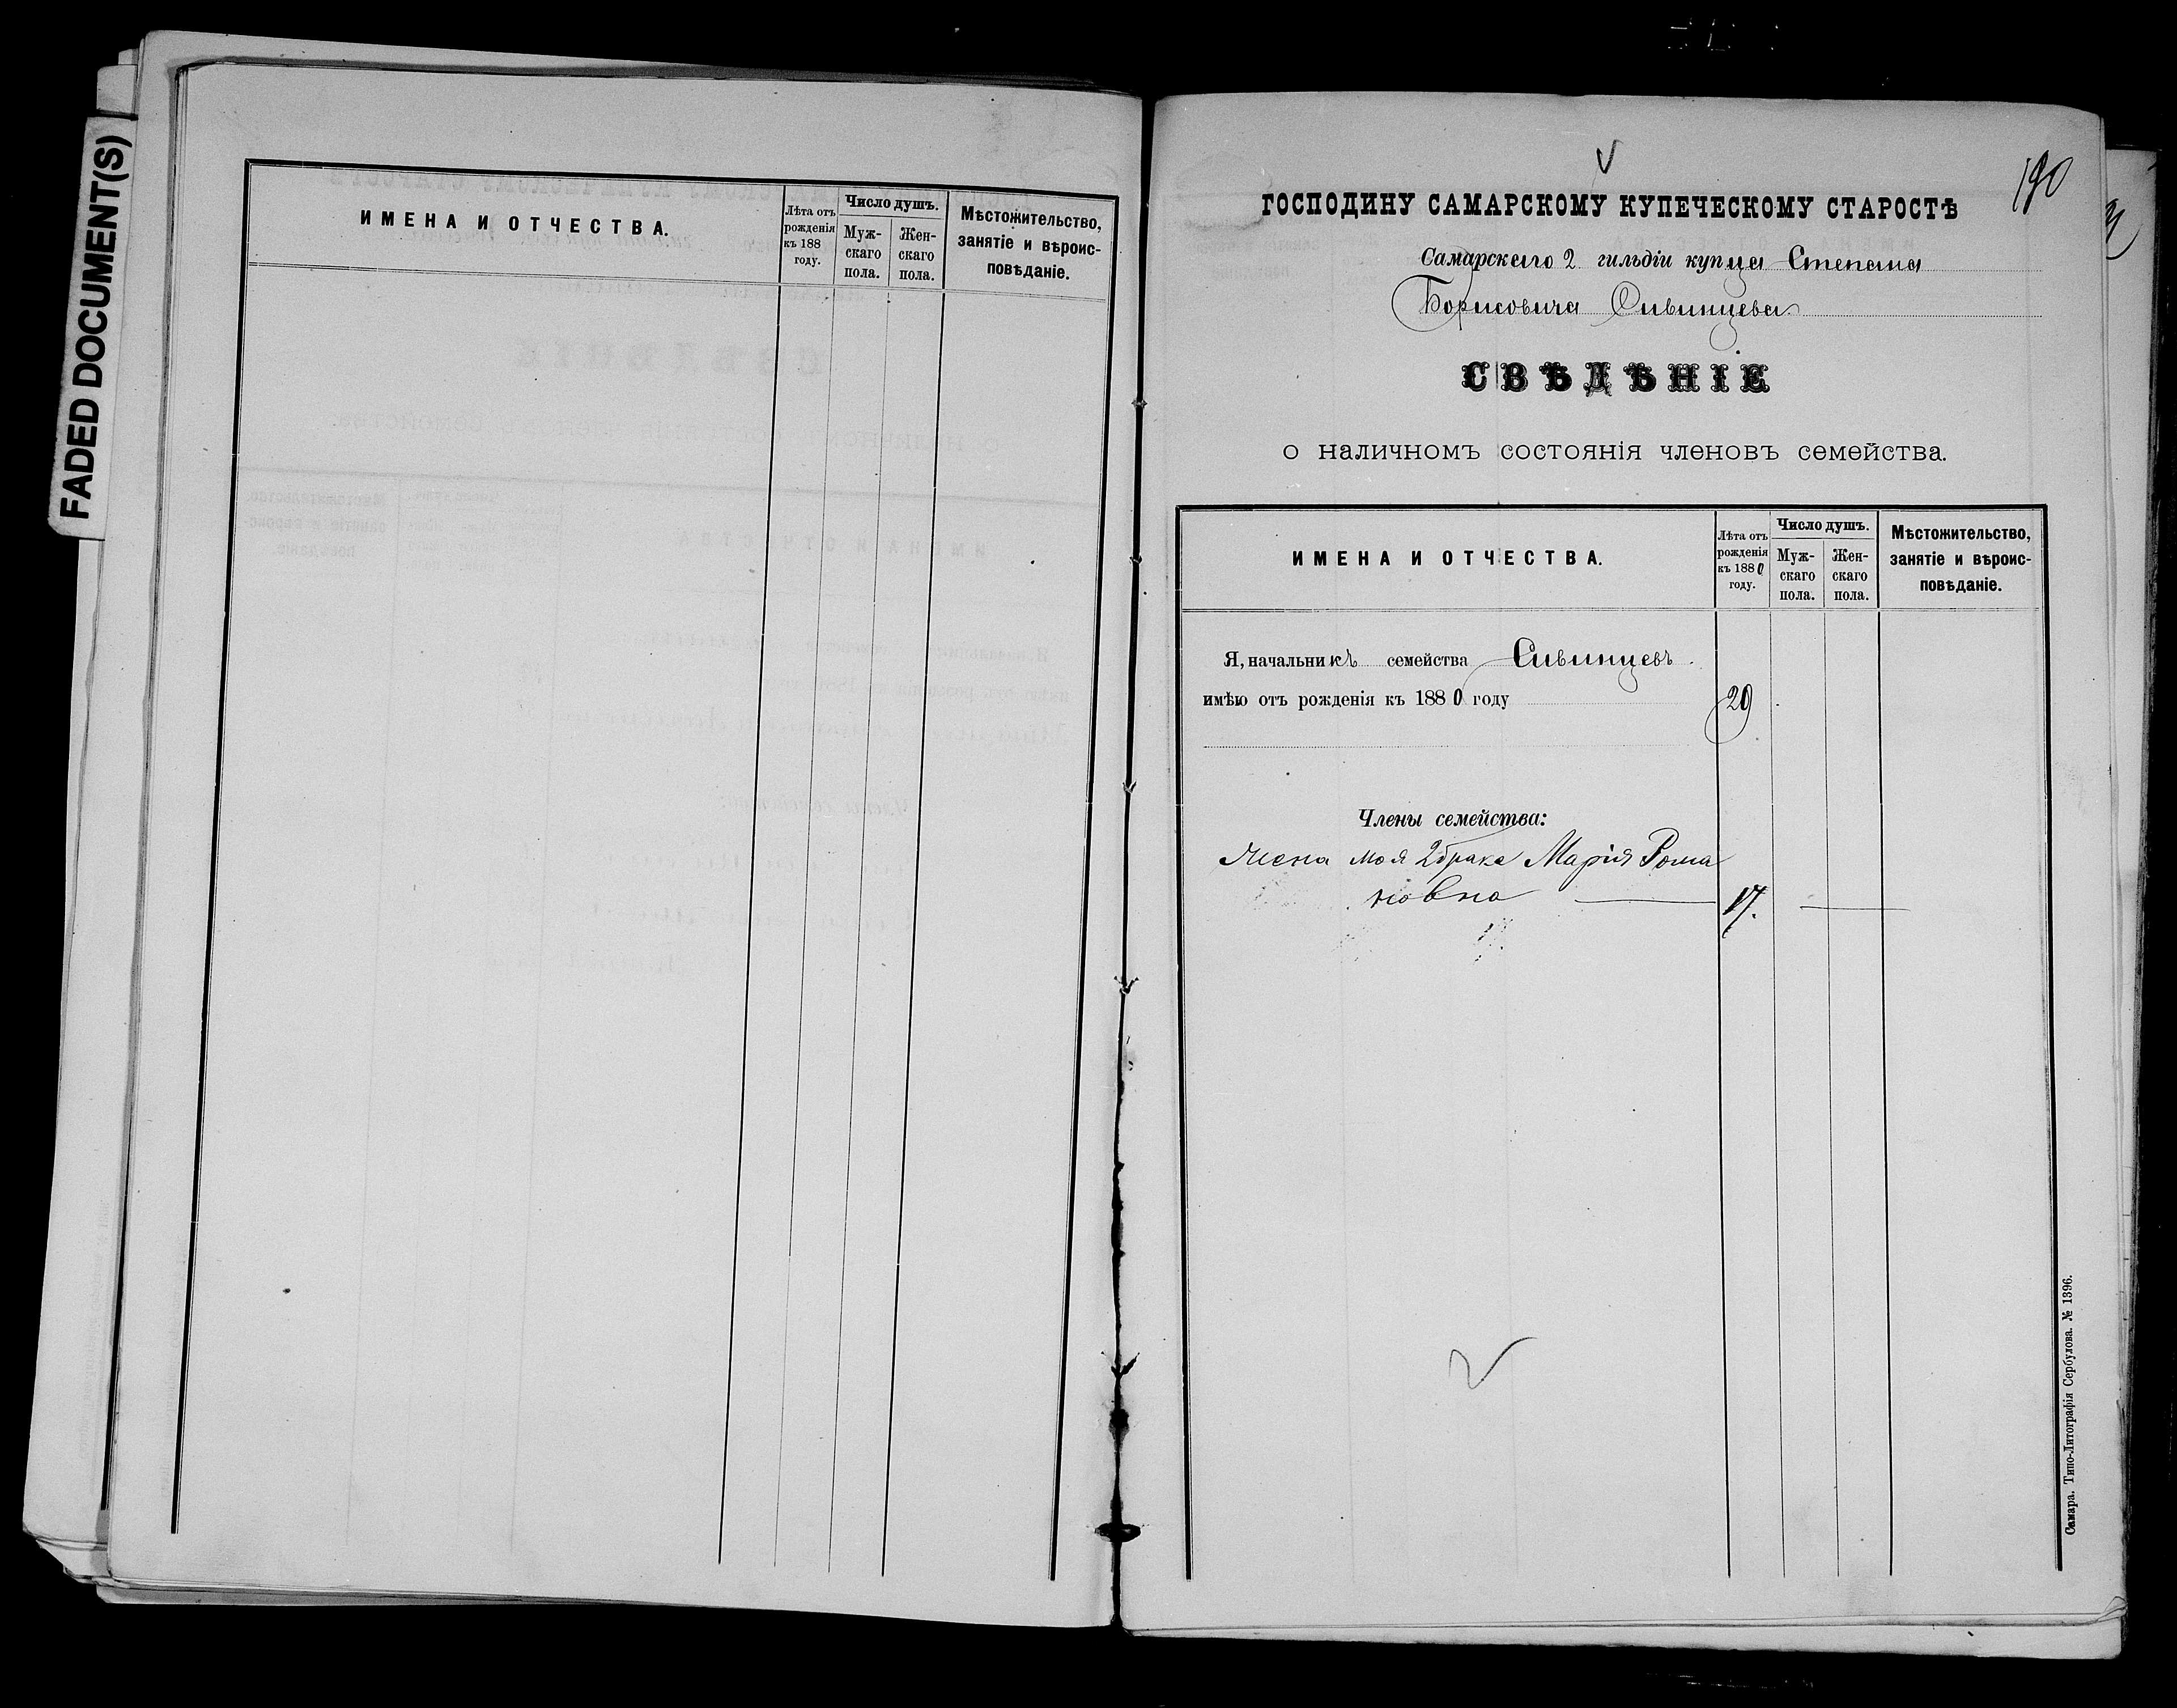 FADED DOCUMENT(S)
ИМЕНА И ОТЧЕСТВА.
Лѣта отъ
рожденія
къ 188
году.
Число душъ.
Муж-
скаго
пола.
Жен-
скаго
пола.
Мѣстожительство,
занятіе и вѣроис-
повѣданіе.
190
ГОСПОДИНУ САМАРСКОМУ КУПЕЧЕСКОМУ СТАРОСТѢ
Самарскаго 2 гильдіи купца Степана
Борисовича Сивинцева
СВѢДѢНІЕ
о наличномъ состоянія членовъ семейства.
ИМЕНА И ОТЧЕСТВА.
Лѣта отъ
рожденія
къ 1880
году.
Число душъ.
Муж-
скаго
пола.
Жен-
скаго
пола.
Мѣстожительство,
занятіе и вѣроис-
повѣданіе.
Я, начальникъ семейства Сивинцевъ
имѣю отъ рожденія къ 1880 году 29
Члены семейства:
Жена моя 2 брака Марія Рома
новна 17.
Самара. Типо-Литографія Сербулова. № 1396.